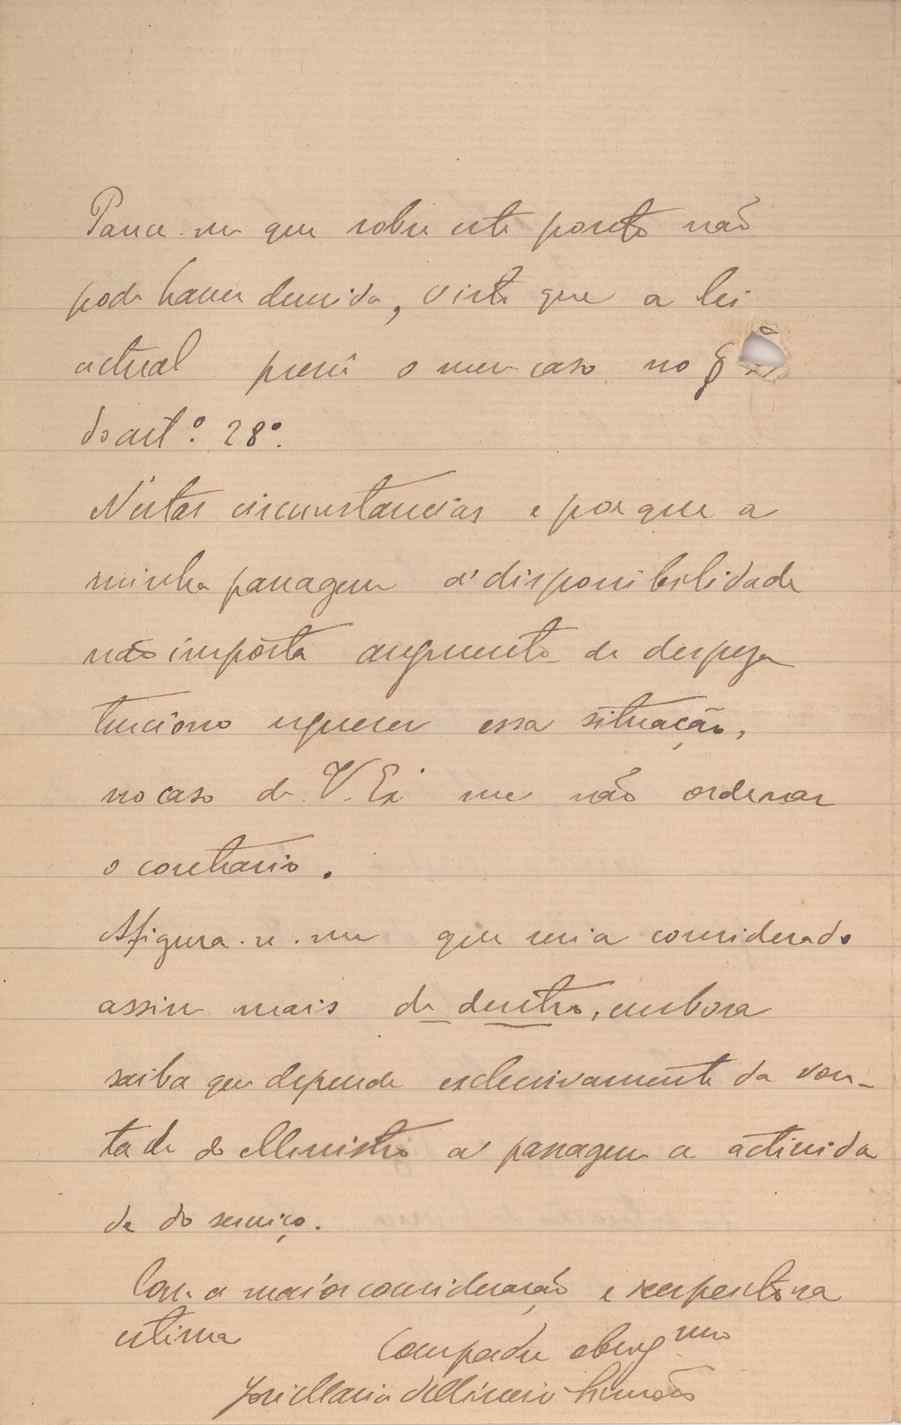 Parece-me que sobre este ponto não
pode haver duvida, visto que a lei
actual prevê o meu caso no §
do artº. 28º.
N'estas circunstancias e porque a
minha passagem á disponibilidade
não importa augmento de despeza
tenciono requerer essa situação,
no caso de V. Exª me não ordenar
o contrario.
Afigura-se-me que seria considerado
assim mais de dentro, embora
saiba que depende exclusivamente da von-
tade do Ministro a passagem a activida
de do serviço.
Com a maior consideração e respeitosa
estima
Compadre obrig.mo
José Maria d'